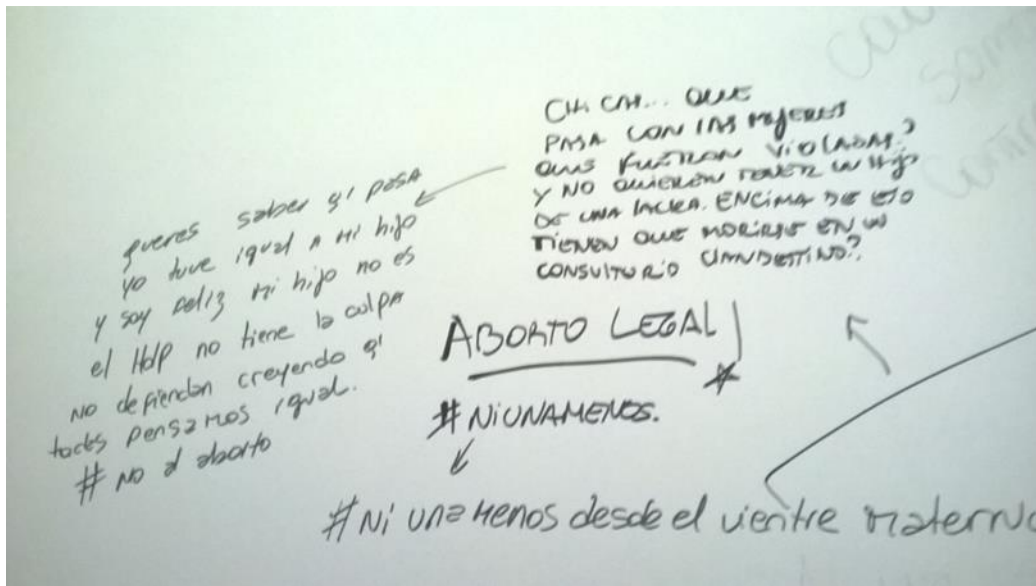 QUE
PASA CON LAS MUJERES
QUE FUERON VIOLADAS?
Y NO QUIEREN TENER UN HIJO
DE UNA LACRA. ENCIMA DE ESO
TIENEN QUE MORIRSE EN UN
CONSULTORIO CLANDESTINO?
queres saber q' pasa
yo tuve igual a mi hijo
y soy feliz mi hijo no es
el HdP no tiene la culpa
NO defiendan creyendo q'
todas pensamos igual.
# NO al aborto
ABORTO LEGAL
# NiUNAMENOS.
# Ni una menos desde el vientre materno